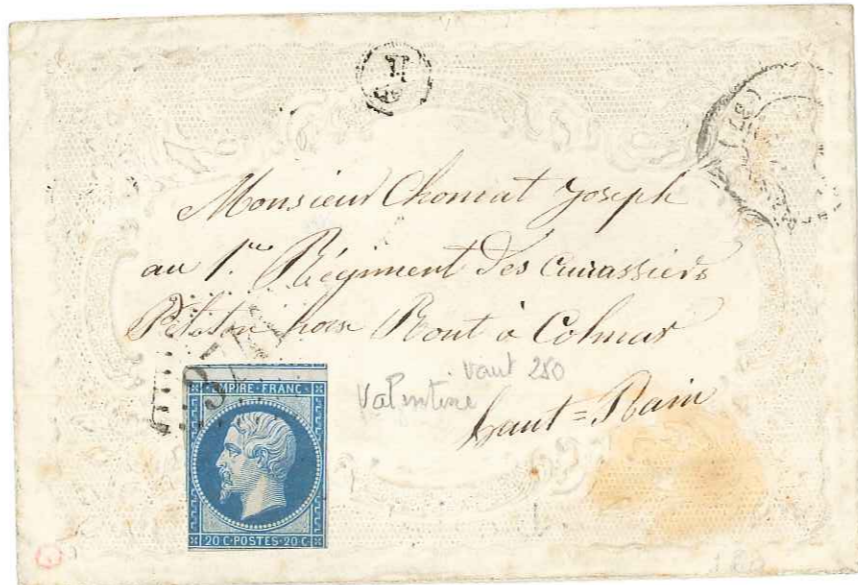 Monsieur Chomat Joseph
au 1er Régiment des cuirassiers
Peloton hors Ront à Colmar
haut = Rain
vaut 280
Valentine
EMPIRE • FRANC •
20 C • POSTES • 20 C